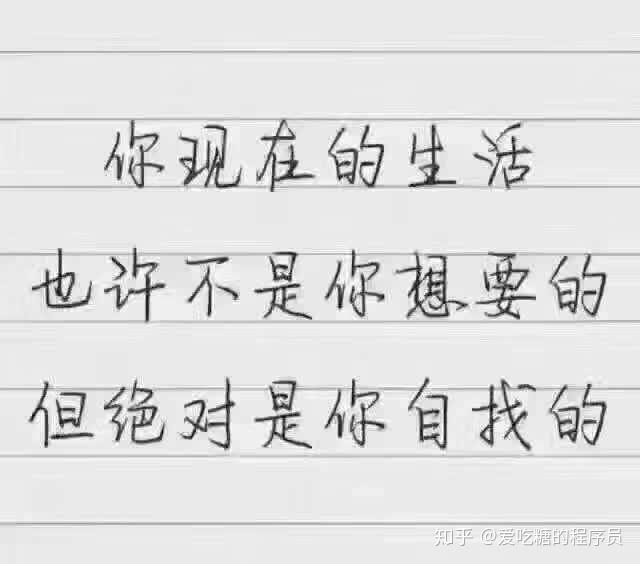 你现在的生活
也许不是你想要的
但绝对是你自找的
知乎 @爱吃糖的程序员